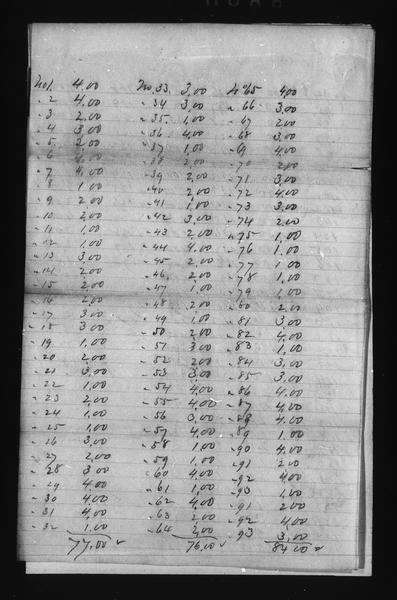 No 1. 4.00
" 2 4.00
" 3 2.00
" 4 3.00
" 5 2.00
" 6 4.00
" 7 4.00
" 8 1.00
" 9 2.00
" 10 2.00
" 11 1.00
" 12 1.00
" 13 3.00
" 14 2.00
" 15 2.00
" 16 2.00
" 17 3.00
" 18 3.00
" 19 1.00
" 20 2.00
" 21 3.00
" 22 1.00
" 23 2.00
" 24 1.00
" 25 1.00
" 26 3.00
" 27 2.00
" 28 3.00
" 29 4.00
" 30 4.00
" 31 4.00
" 32 1.00
77.00 ✓
No 33. 3.00
" 34 3.00
" 35 1.00
" 36 4.00
" 37 1.00
" 38 2.00
" 39 2.00
" 40 2.00
" 41 1.00
" 42 3.00
" 43 2.00
" 44 4.00
" 45 2.00
" 46 2.00
" 47 1.00
" 48 2.00
" 49 1.00
" 50 2.00
" 51 3.00
" 52 2.00
" 53 3.00
" 54 4.00
" 55 4.00
" 56 3.00
" 57 4.00
" 58 1.00
" 59 1.00
" 60 4.00
" 61 1.00
" 62 4.00
" 63 2.00
" 64 2.00
76.00 ✓
No 65 4.00
" 66 3.00
" 67 2.00
" 68 3.00
" 69 4.00
" 70 2.00
" 71 3.00
" 72 4.00
" 73 3.00
" 74 2.00
" 75 1.00
" 76 1.00
" 77 1.00
" 78 1.00
" 79 1.00
" 80 2.00
" 81 3.00
" 82 4.00
" 83 1.00
" 84 3.00
" 85 3.00
" 86 4.00
" 87 4.00
" 88 4.00
" 89 1.00
" 90 4.00
" 91 2.00
" 92 4.00
" 93 1.00
" 91 2.00
" 92 4.00
" 93 3.00
84.00 ✓